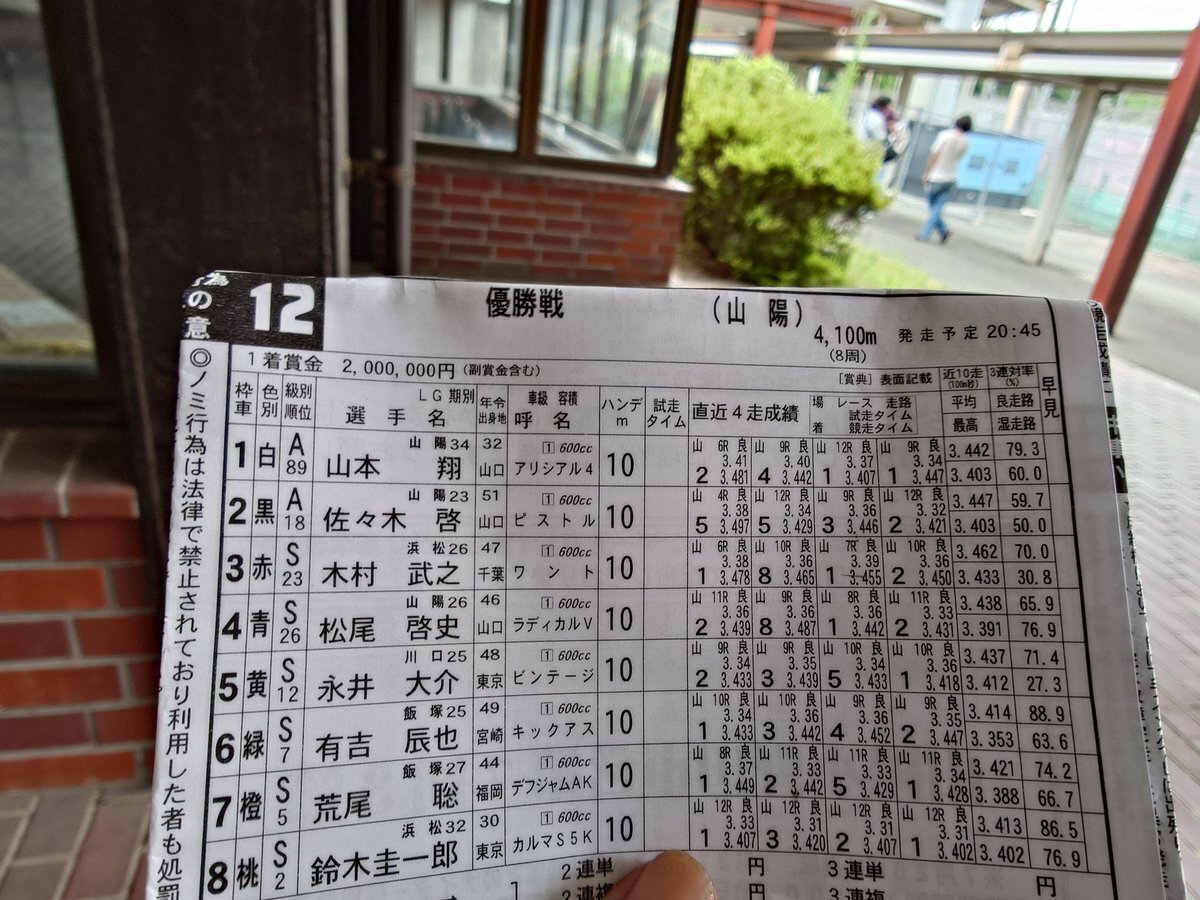 為
の意
◎ノミ行為は法律で禁止されており利用した者も処罰
12 優勝戦 (山陽) 4,100m 発走予定 20:45
(8周)
1着賞金 2,000,000円(副賞金含む) [賞典] 表面記載
枠車 色別 級別順位 LG期別 選手名 年令出身地 車級 容積 呼名 ハンデm 試走タイム 直近4走成績 場 着 レース 走路 試走タイム 競走タイム 近10走(100m秒) 平均 最高 3連対率(%) 良走路 湿走路 早見
1 白 A89 山陽34 山本 翔 32 山口 1 600cc アリシアル4 10
山 6R 良 3.41 2 3.481 山 9R 良 3.40 4 3.442 山 12R 良 3.37 1 3.407 山 9R 良 3.34 1 3.447
3.442 79.3
3.403 60.0
2 黒 A18 山陽23 佐々木 啓 51 山口 1 600cc ピストル 10
山 4R 良 3.38 5 3.497 山 12R 良 3.34 5 3.429 山 9R 良 3.36 3 3.446 山 12R 良 3.32 2 3.421
3.447 59.7
3.403 50.0
3 赤 S23 浜松26 木村 武之 47 千葉 1 600cc ワント 10
山 6R 良 3.38 1 3.478 山 10R 良 3.36 8 3.465 山 7R 良 3.39 1 3.455 山 10R 良 3.36 2 3.450
3.462 70.0
3.433 30.8
4 青 S26 山陽26 松尾 啓史 46 山口 1 600cc ラディカルV 10
山 11R 良 3.36 2 3.439 山 9R 良 3.36 8 3.487 山 8R 良 3.36 1 3.442 山 11R 良 3.33 2 3.431
3.438 65.9
3.391 76.9
5 黄 S12 川口25 永井 大介 48 東京 1 600cc ビンテージ 10
山 9R 良 3.34 2 3.433 山 9R 良 3.35 3 3.439 山 10R 良 3.34 5 3.433 山 10R 良 3.36 1 3.418
3.437 71.4
3.412 27.3
6 緑 S7 飯塚25 有吉 辰也 49 宮崎 1 600cc キックアス 10
山 10R 良 3.34 1 3.433 山 12R 良 3.36 3 3.442 山 9R 良 3.36 4 3.452 山 9R 良 3.35 2 3.447
3.414 88.9
3.353 63.6
7 橙 S5 飯塚27 荒尾 聡 44 福岡 1 600cc デフジャムAK 10
山 8R 良 3.37 1 3.449 山 11R 良 3.33 2 3.442 山 11R 良 3.33 5 3.429 山 11R 良 3.34 1 3.428
3.421 74.2
3.388 66.7
8 桃 S2 浜松32 鈴木圭一郎 30 東京 1 600cc カルマS5K 10
山 12R 良 3.33 1 3.407 山 12R 良 3.31 3 3.420 山 12R 良 3.31 2 3.407 山 12R 良 3.31 1 3.402
3.413 86.5
3.402 76.9
2連単 円 3連単
2連複 円 3連複 円